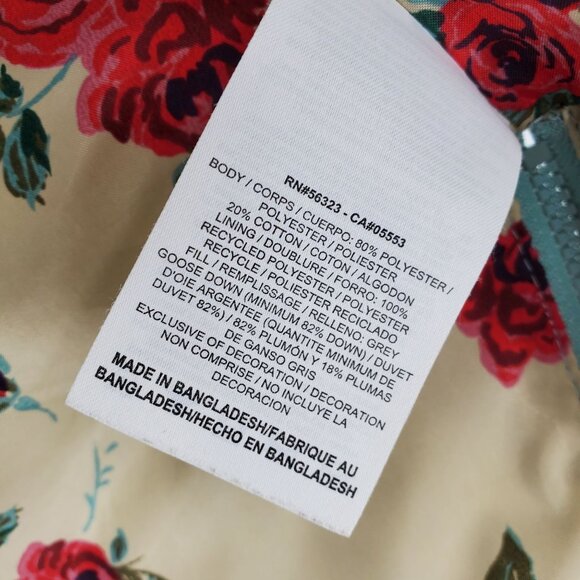 RN#56323 - CA#05553
BODY / CORPS / CUERPO: 80% POLYESTER /
POLYESTER / POLIESTER
20% COTTON / COTON / ALGODON
LINING / DOUBLURE / FORRO: 100%
RECYCLED POLYESTER / POLYESTER
RECYCLE / POLIESTER RECICLADO
FILL / REMPLISSAGE / RELLENO: GREY
GOOSE DOWN (MINIMUM 82% DOWN) / DUVET
D'OIE ARGENTEE (QUANTITE MINIMUM DE
DUVET 82%) / 82% PLUMÓN Y 18% PLUMAS
DE GANSO GRIS
EXCLUSIVE OF DECORATION / DECORATION
NON COMPRISE / NO INCLUYE LA
DECORACION
MADE IN BANGLADESH/FABRIQUE AU
BANGLADESH/HECHO EN BANGLADESH